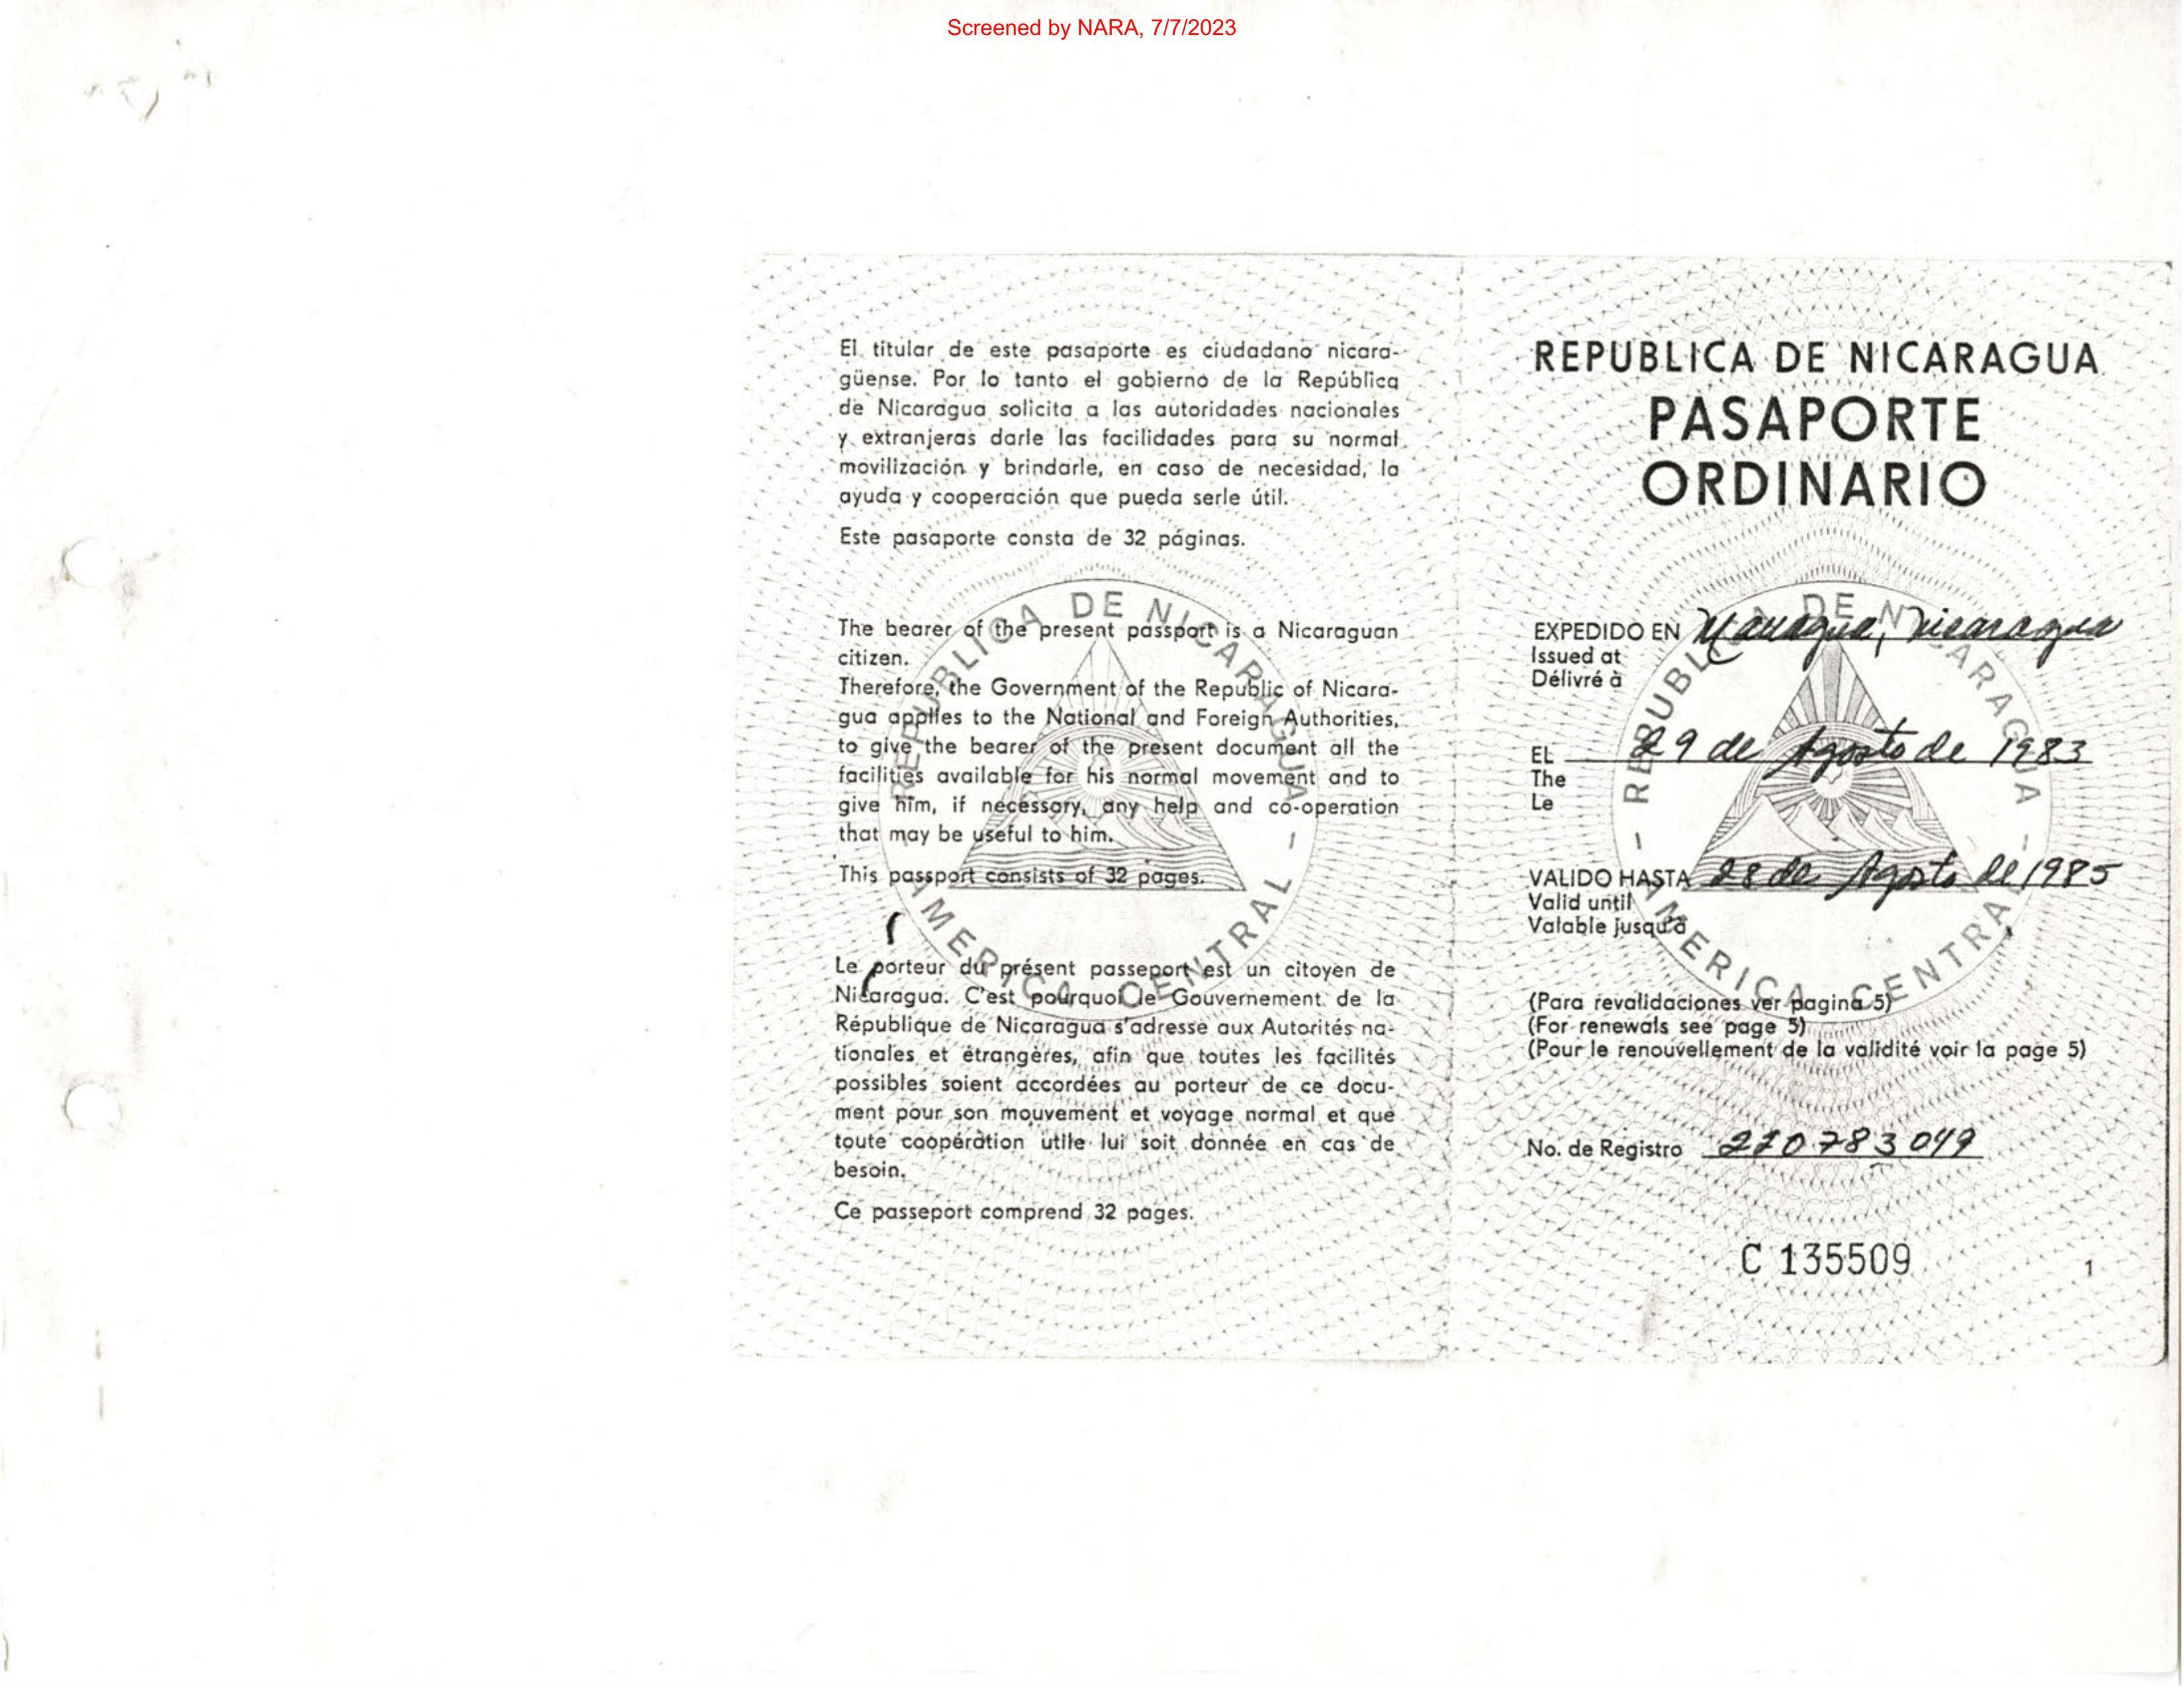 Screened by NARA, 7/7/2023
El titular de este pasaporte es ciudadano nicara-
güense. Por lo tanto el gobierno de la República
de Nicaragua solicita a las autoridades nacionales
y extranjeras darle las facilidades para su normal
movilización y brindarle, en caso de necesidad, la
ayuda y cooperación que pueda serle útil.
Este pasaporte consta de 32 páginas.
The bearer of the present passport is a Nicaraguan
citizen.
Therefore, the Government of the Republic of Nicara-
gua applies to the National and Foreign Authorities,
to give the bearer of the present document all the
facilities available for his normal movement and to
give him, if necessary, any help and co-operation
that may be useful to him.
This passport consists of 32 pages.
Le porteur du présent passeport est un citoyen de
Nicaragua. C'est pourquoi le Gouvernement de la
République de Nicaragua s'adresse aux Autorités na-
tionales et étrangères, afin que toutes les facilités
possibles soient accordées au porteur de ce docu-
ment pour son mouvement et voyage normal et que
toute coopération utile lui soit donnée en cas de
besoin.
Ce passeport comprend 32 pages.
REPUBLICA DE NICARAGUA
AMERICA CENTRAL
REPUBLICA DE NICARAGUA
PASAPORTE
ORDINARIO
EXPEDIDO EN Managua, Nicaragua
Issued at
Délivré à
EL 29 de Agosto de 1983
The
Le
VALIDO HASTA 28 de Agosto de 1985
Valid until
Valable jusqu'à
(Para revalidaciones ver pagina 5)
(For renewals see page 5)
(Pour le renouvellement de la validité voir la page 5)
No. de Registro 220783049
C 135509
1
REPUBLICA DE NICARAGUA
AMERICA CENTRAL